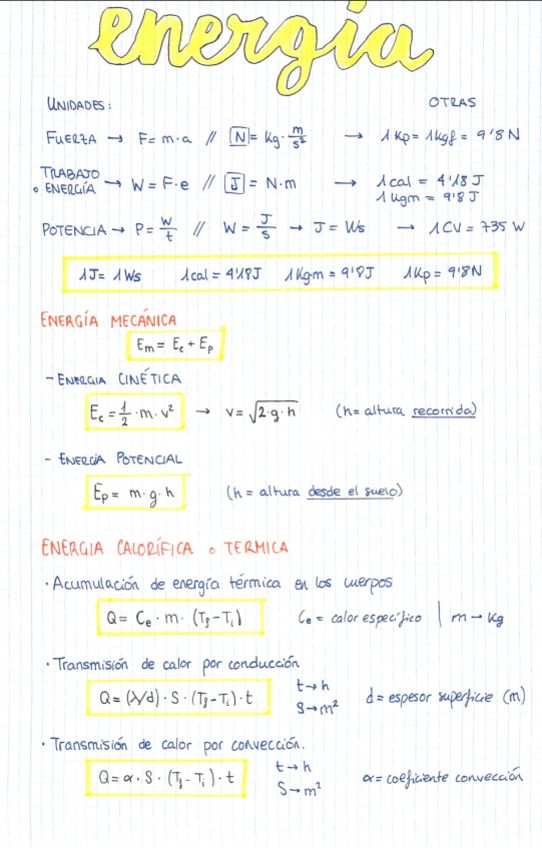 energía
UNIDADES: OTRAS
FUERZA → F= m·a // [N]= Kg· m/s² → 1 Kp = 1Kgf = 9'8 N
TRABAJO
o ENERGÍA → W = F·e // [J] = N·m → 1 cal = 4'18 J
1 kgm = 9'8 J
POTENCIA → P= W/t // W = J/s → J = Ws → 1 CV = 735 W
1J= 1Ws 1cal = 4'18J 1Kg·m = 9'8J 1Kp = 9'8N
ENERGÍA MECÁNICA
Em = Ec + Ep
- ENERGIA CINÉTICA
Ec = 1/2 ·m·v² → v= √2·g·h (h= altura recorrida)
- ENERGÍA POTENCIAL
Ep= m·g·h (h = altura desde el suelo)
ENERGIA CALORÍFICA o TERMICA
·Acumulación de energía térmica en los cuerpos
Q= Ce · m· (Tf-Ti) Ce = calor específico | m → Kg
·Transmisión de calor por conducción
Q= (λ/d) · S · (Tf-Ti)· t t→h
S→m² d= espesor superficie (m)
· Transmisión de calor por convección.
Q= α · S · (Tf - Ti) · t t→h
S→ m² α= coeficiente convección